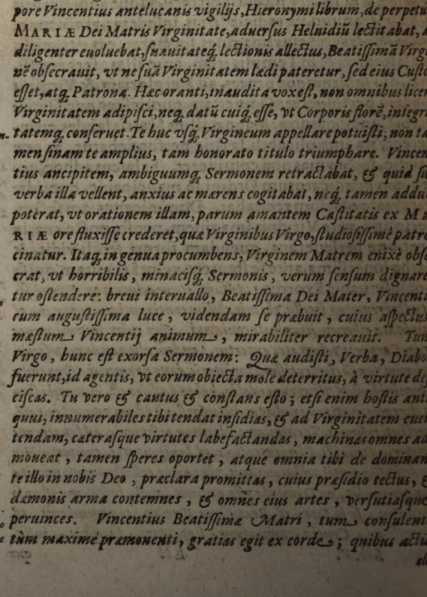 pore Vincentius antelucanis vigilijs, Hieronymi librum, de perpetu
MARIÆ Dei Matris Virginitate, aduersus Heluidiũ lectitabat, a
diligenter euoluebat, suauitateq́; lectionis allectus, Beatissimã Virgi
nẽ obsecrauit, vt ne suã Virginitatem lædi pateretur, sed eius Custo
esset, atq́; Patrona. Hæc oranti, inaudita vox est, non omnibus licer
Virginitatem adipisci, neq́; datũ cuiq́; esse, vt Corporis florẽ, integri
tatemq́; conseruet. Te huc vsq́; Virgineum appellare potuisti, non ta
men sinam te amplius, tam honorato titulo triumphare. Vincen
tius ancipitem, ambiguumq́; Sermonem retractabat, & quid si
verba illa vellent, anxius ac mærens cogitabat, neq́; tamen adduc
poterat, vt orationem illam, parum amantem Castitatis ex MA
RIÆ ore fluxisse crederet, quæ Virginibus Virgo, studiosissimè patro
cinatur. Itaq́; in genua procumbens, Virginem Matrem enixè obse
crat, vt horribilis, minacisq́; Sermonis, verum sensum dignare
tur ostendere: breui interuallo, Beatissima Dei Mater, Vincenti
cum augustissima luce, videndam se præbuit, cuius aspectus
mæstum Vincentij animum, mirabiliter recreauit. Tum
Virgo, hunc est exorsa Sermonem: Quæ audisti, Verba, Diabo
fuerunt, id agentis, vt eorum obiecta mole deterritus, à virtute de
ciscas. Tu vero & cautus & constans esto; etsi enim hostis anti
quus, innumerabiles tibi tendat insidias, & ad Virginitatem euer
tendam, cæterasque virtutes labefactandas, machinas omnes ad
moueat, tamen speres oportet, atque omnia tibi de dominan
te illo in nobis Deo, præclara promittas, cuius præsidio tectus, &
dæmonis arma contemnes, & omnes eius artes, versutiasque
peruinces. Vincentius Beatissimæ Matri, tum consulent
tùm maximè præmonenti, gratias egit ex corde; quibus actis